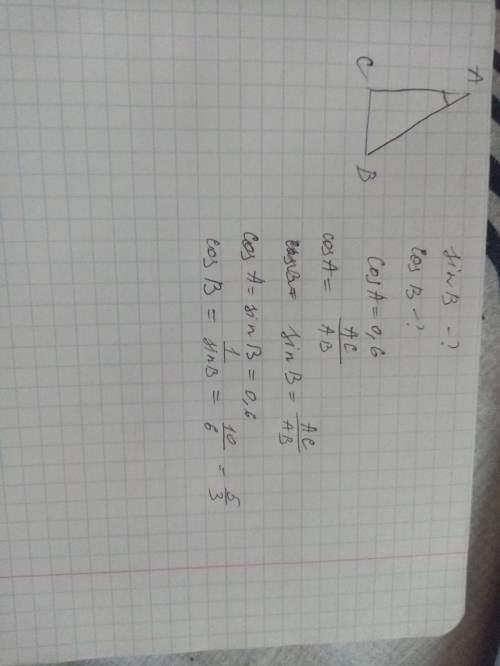 A
C
B
sin B - ?
cos B - ?
cos A = 0,6
cos A = AC/AB
sin B = AC/AB
cos A = sin B = 0,6
cos B = 1/sin B = 10/6 = 5/3